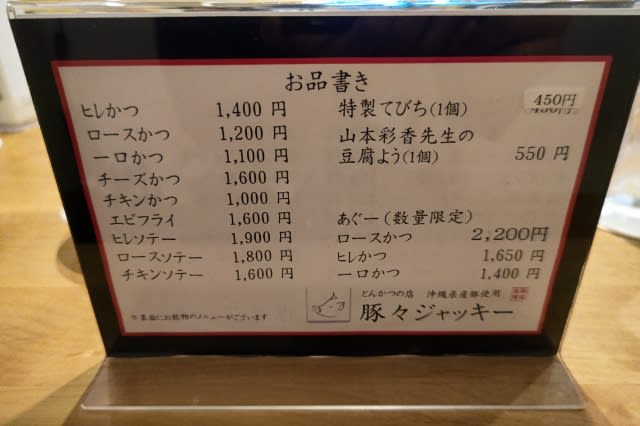 お品書き
ヒレかつ 1,400 円
ロースかつ 1,200 円
一口かつ 1,100 円
チーズかつ 1,600 円
チキンかつ 1,000 円
エビフライ 1,600 円
ヒレソテー 1,900 円
ロースソテー 1,800 円
チキンソテー 1,600 円
※裏面にお飲物のメニューがございます
特製てびち(1個) 450円
山本彩香先生の
豆腐よう(1個) 550 円
あぐー(数量限定)
ロースかつ 2,200円
ヒレかつ 1,650 円
一口かつ 1,400 円
とんかつの店 沖縄県産豚使用
豚々ジャッキー